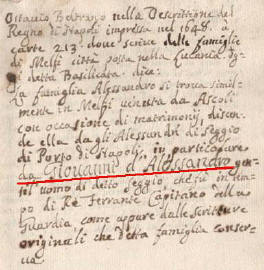 Ottavio Beltrano nella Descrittione del
Regno di Napoli impressa nel 1648. à
carte 213. dove scrive delle famiglie
di Melfi città posta nella Lucania, og-
gi detta Basilicata. dice:
La famiglia Alessandro si trova simil-
mente in Melfi venuta da Ascoli
con occasione di matrimonij, discen-
de ella da gli Alessandri di Seggio
di Porto di Napoli, in particolare
da Giovanni d'Alessandro gen-
til'uomo di detto Seggio, che fù in tem-
po di Rè Ferrante Capitano della
Guardia come appare dalle scritture
originali che detta famiglia conser-
va